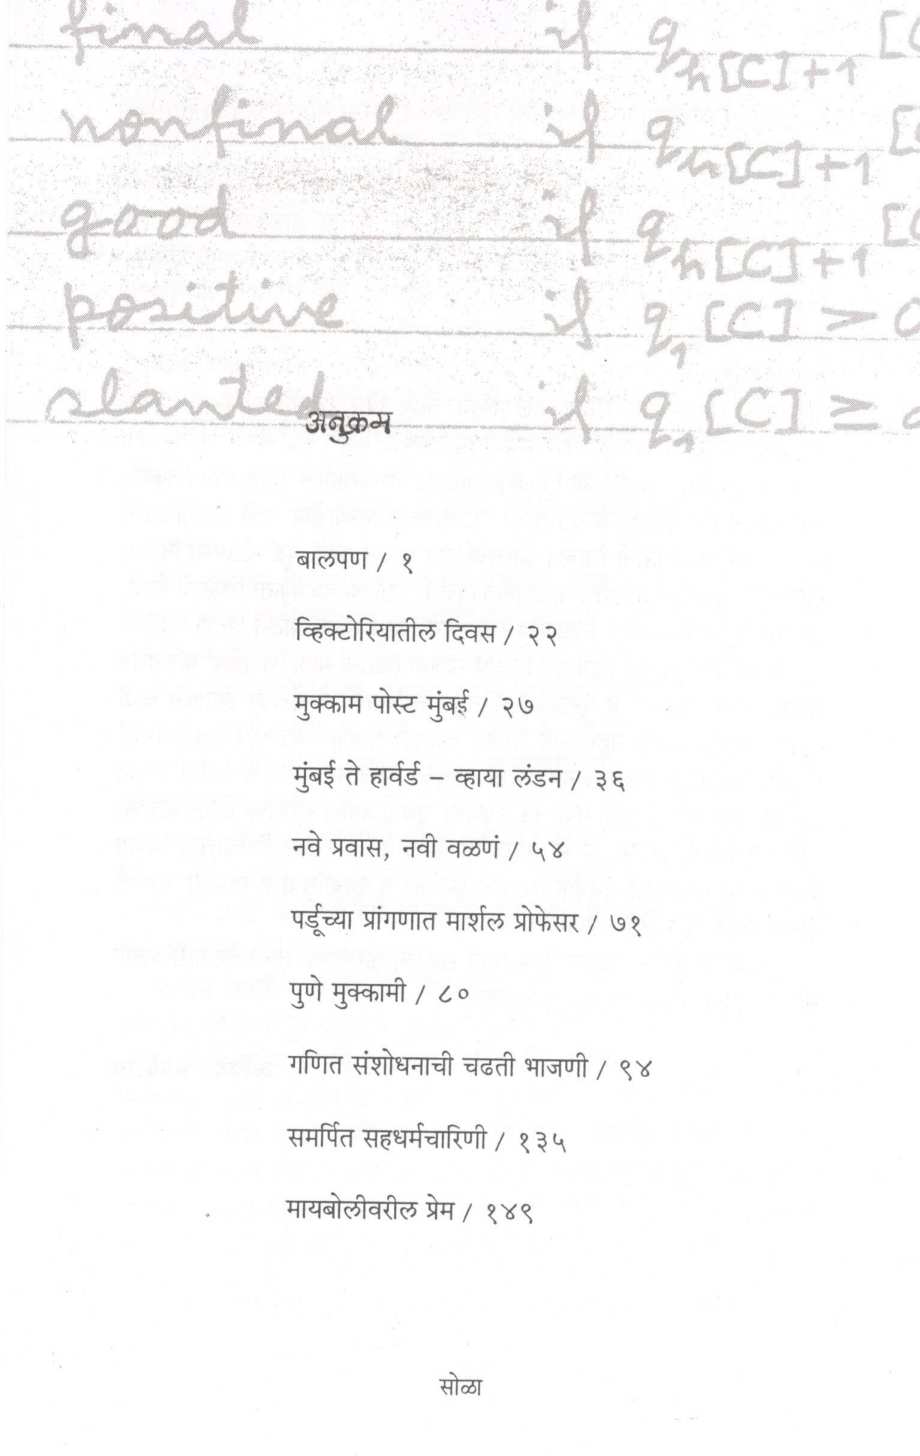 final if q h[C]+1 [
nonfinal if q h[C]+1 [
good if q h[C]+1 [
positive if q 1 [C] >
slanted if q 1 [C] ≥
अनुक्रम
बालपण / १
व्हिक्टोरियातील दिवस / २२
मुक्काम पोस्ट मुंबई / २७
मुंबई ते हार्वर्ड – व्हाया लंडन / ३६
नवे प्रवास, नवी वळणं / ५४
पर्डूच्या प्रांगणात मार्शल प्रोफेसर / ७१
पुणे मुक्कामी / ८०
गणित संशोधनाची चढती भाजणी / ९४
समर्पित सहधर्मचारिणी / १३५
मायबोलीवरील प्रेम / १४९
सोळा